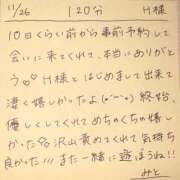 11/26 120分 H様
10日くらい前から事前予約して
会いに来てくれて、本当にありがと
う♡♡ H様とはじめまして出来て
凄く嬉しかったよ(˶ˆ꒳ˆ˵) 終始、
優しくしてくれてめちゃくちゃ嬉し
かった‰沢山責めてくれて気持ち
良かった!!! また一緒に遊ぼうね!!
みと